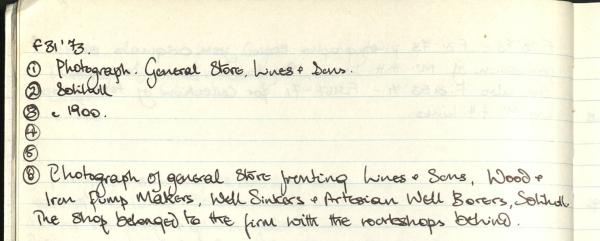 F31'73.
① Photograph. General Store, Lines + Sons.
② Solihull
③ c 1900.
④
⑤
⑥ Photograph of general store fronting Lines + Sons, Wood +
Iron Pump Makers, Well Sinkers + Artesian Well Borers, Solihull
The shop belonged to the firm with the workshops behind.